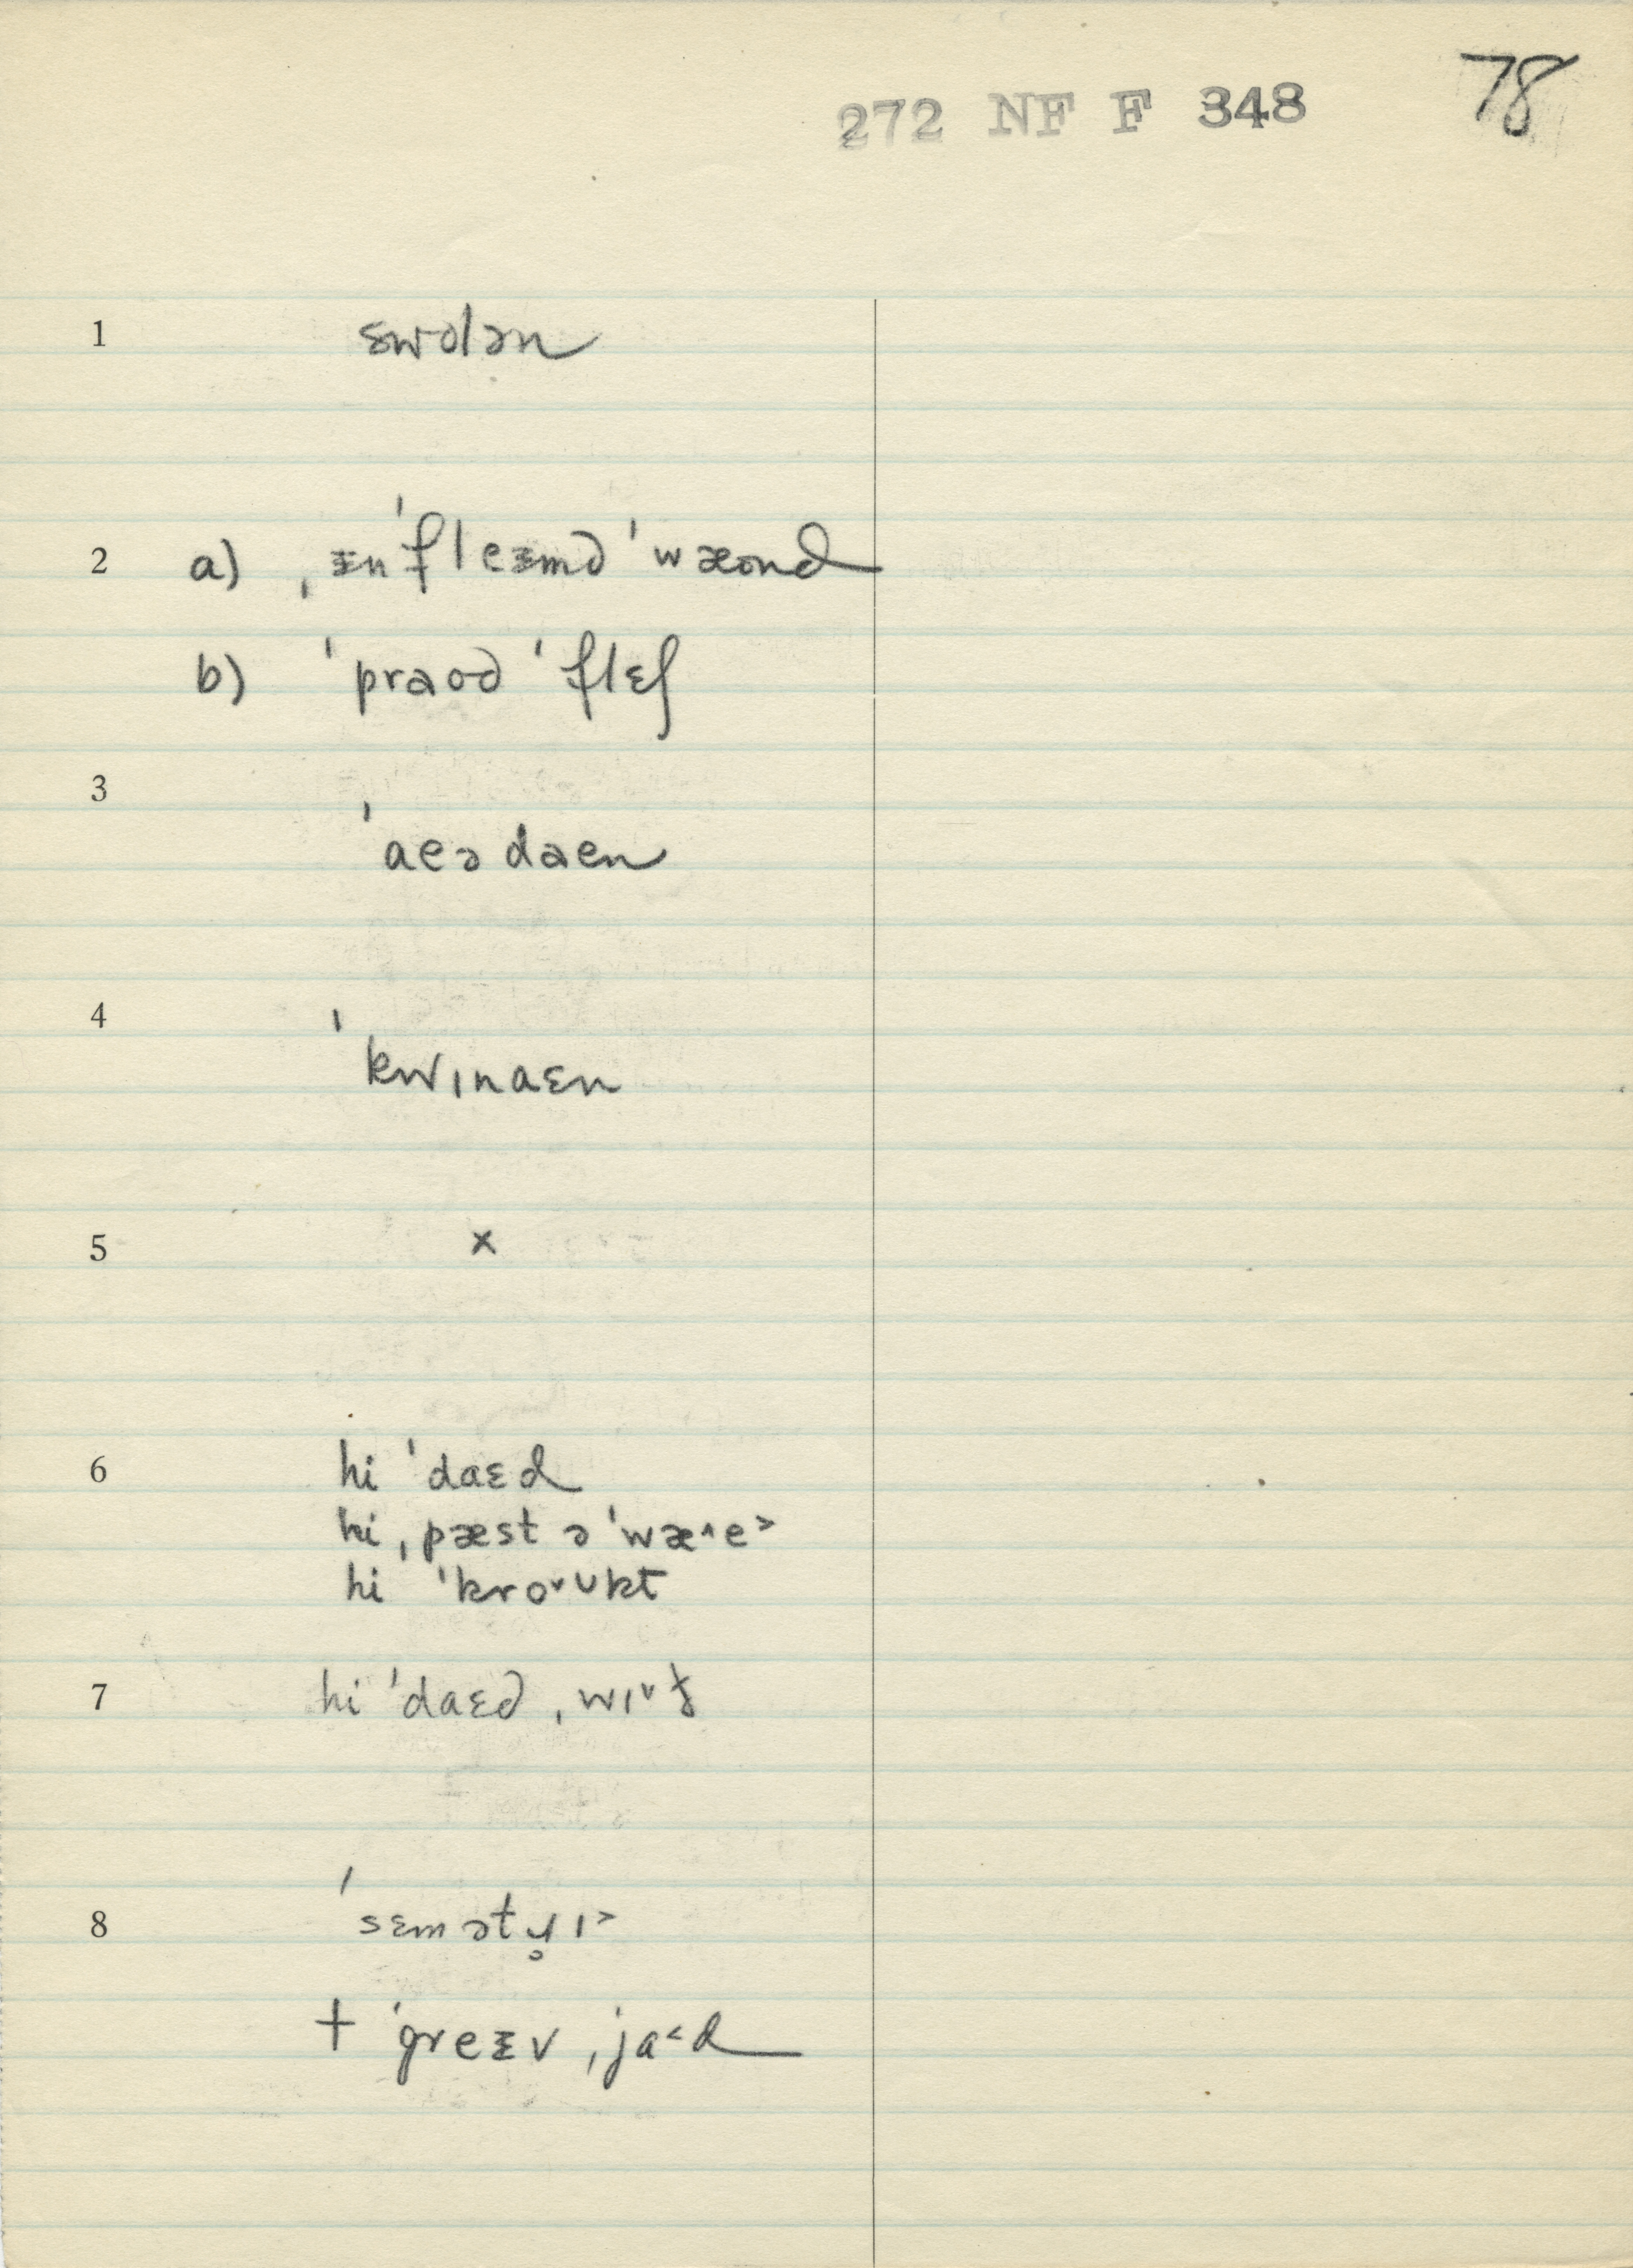 272 NF F 348 78
1 swolən
2 a) ˌᵻnˈfleᵻmd ˈwæond
b) ˈpraod ˈflɛʃ
3 ˈaeədaen
4 ˈkwɪnaɛn
5 x
6 hi ˈdaɛd
hi ˌpæst ə ˈwæ^e>
hi ˈkro˅ʊkt
7 hi ˈdaɛd ˌwɪ˅ɟ
8 ˈsɛmətɥ̥ɪ>
+ ˈgreᵻv ˌja<d